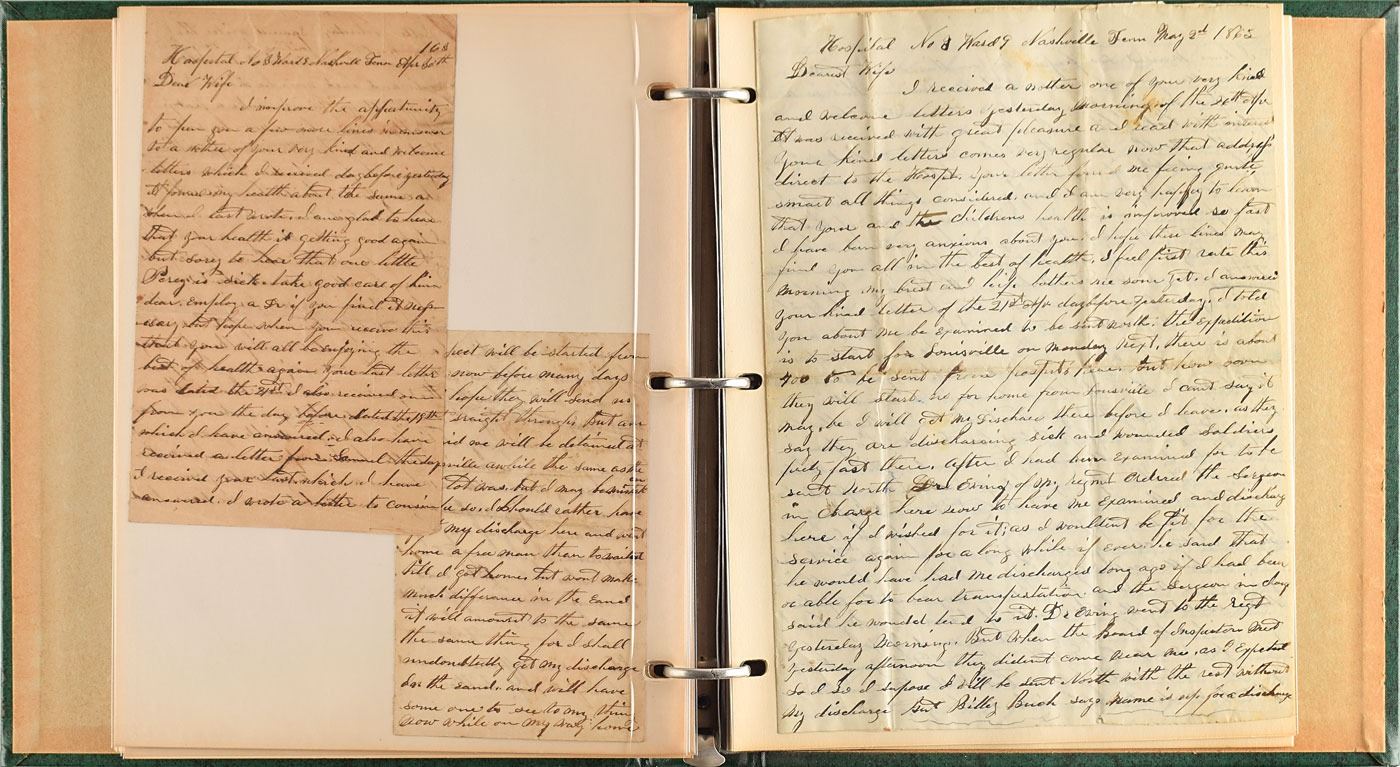 168
Hospital No 8 Ward 9 Nashville Tenn Apr 30th
Dear Wife
I improve the oppatunity
to pen you a few more lines in answer
to a nother of your very kind and welcome
letters which I received day before yesterday
It found my health about the same as
when I last wrote. I am glad to hear
that your health is getting good again
but sorry to hear that our little
Percy is sick. take good care of him
dear. Employ a Dr if you find it neses
sary but hope when you receive this
that you will all be enjoying the
best of health again your last letter
was dated the I also received one
from you the day before dated the 18th
which I have answered. I also have
received a letter from Samuel the day
I received your last, which I have
answered. I wrote a letter to cousin
pect will be started from
now before many days
hope they will send us
straight through, but am
id we will be detained at
ville awhile the same as the
lot was, but I may be mistak
en
so, I should rather have
my discharge here and went
home a free man than to waited
till I got home, but wont make
much difference in the eand
it will amount to the same
the same thing for I shall
undoubtedly get my discharge
in the eand, and will have
some one to see to my thin
now while on my way home
Hospital No 8 Ward 9 Nashville Tenn May 2d 1863
Dearest Wife
I received a nother one of your very kind
and welcome letters yesterday morning of the 26th Apr
It was received with great pleasure and read with interest
Your kind letters comes very regular now that address
direct to the Hospt. your letter found me feeling quite
smart all things considered. and I am very happy to learn
that your and the childrens health is improved so fast
I have been very anxious about you. I hope these lines may
find you all in the best of health. I feel first rate this
morning my brest and side bothers me some yet. I answered
your kind letter of the 21st Apr day before yesterday. I told
you about me be examined to be sent north. the expedition
is to start for Louisville on Monday next, there is about
400 to be sent from hospitls here. but how soon
they will start us for home from Lousville I cant say it
may be I will get my dischare there before I leave. as they
say they are discharsing sick and wounded soldiers
prety fast there. After I had been examined for to be
sent North Dr Ewing of my regmt ordered the Surgeon
in Charge here now to have me examined and discharg
here if I wished for it, as I wouldent be fit for the
service again for a long while if ever. he said that
he would have had me discharged long ago if I had been
able for to bear transpotation and the Surgeon in charg
said he would tend to it. Dr Ewing went to the regt
yesterday morning. But when the Board of Inspectors met
yesterday afternoon they dident come near me. as I expected
so I supose I will be sent North with the rest without
my discharge but Billy Buck says name is up for a discharge